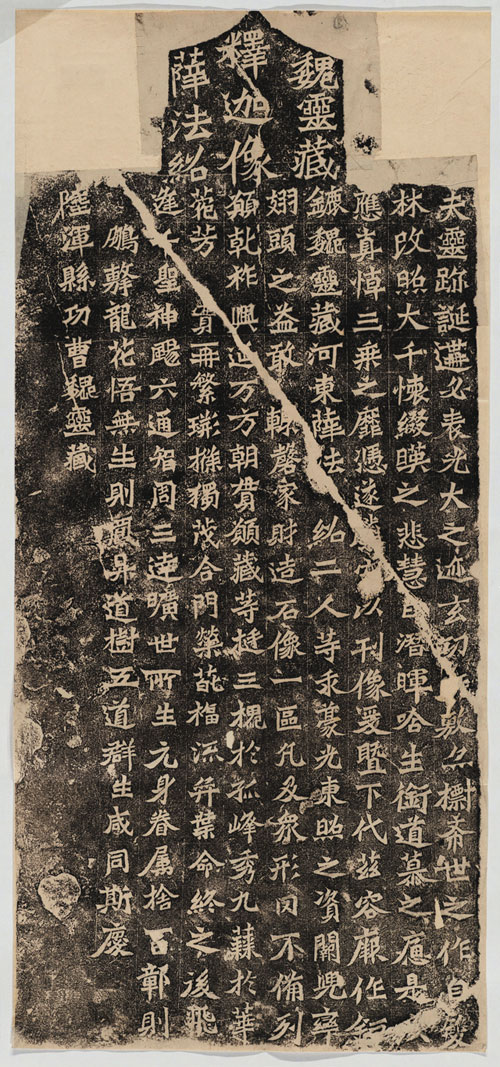 魏靈藏
釋迦像
薛法紹
夫靈跡誕遘必表光大之迹玄功敷亦標希世之作自
林改照大千懷綴暎之悲慧日潛暉唅生銜道慕之痛是
應真悼三乘之靡憑遂以刊像爰暨下代茲容厥作鉅
鏕魏靈藏河東薛法紹二人等求豪光東照之資闕兜率
翅頭之益敢輒磬家財造石像一區凡及眾形罔不備列
願乾祚興延万方朝貫願藏等挺三槻於孤峰秀九蕀於華
菀芳實再繁荊條獨茂合門榮葩福流奕葉命終之後飛
逢聖神颺六通智周三達曠世所生元身眷屬捨百鄣則
鵬擊龍花悟無生則鳳昇道樹五道群生咸同斯慶
陸渾縣功曹魏靈藏